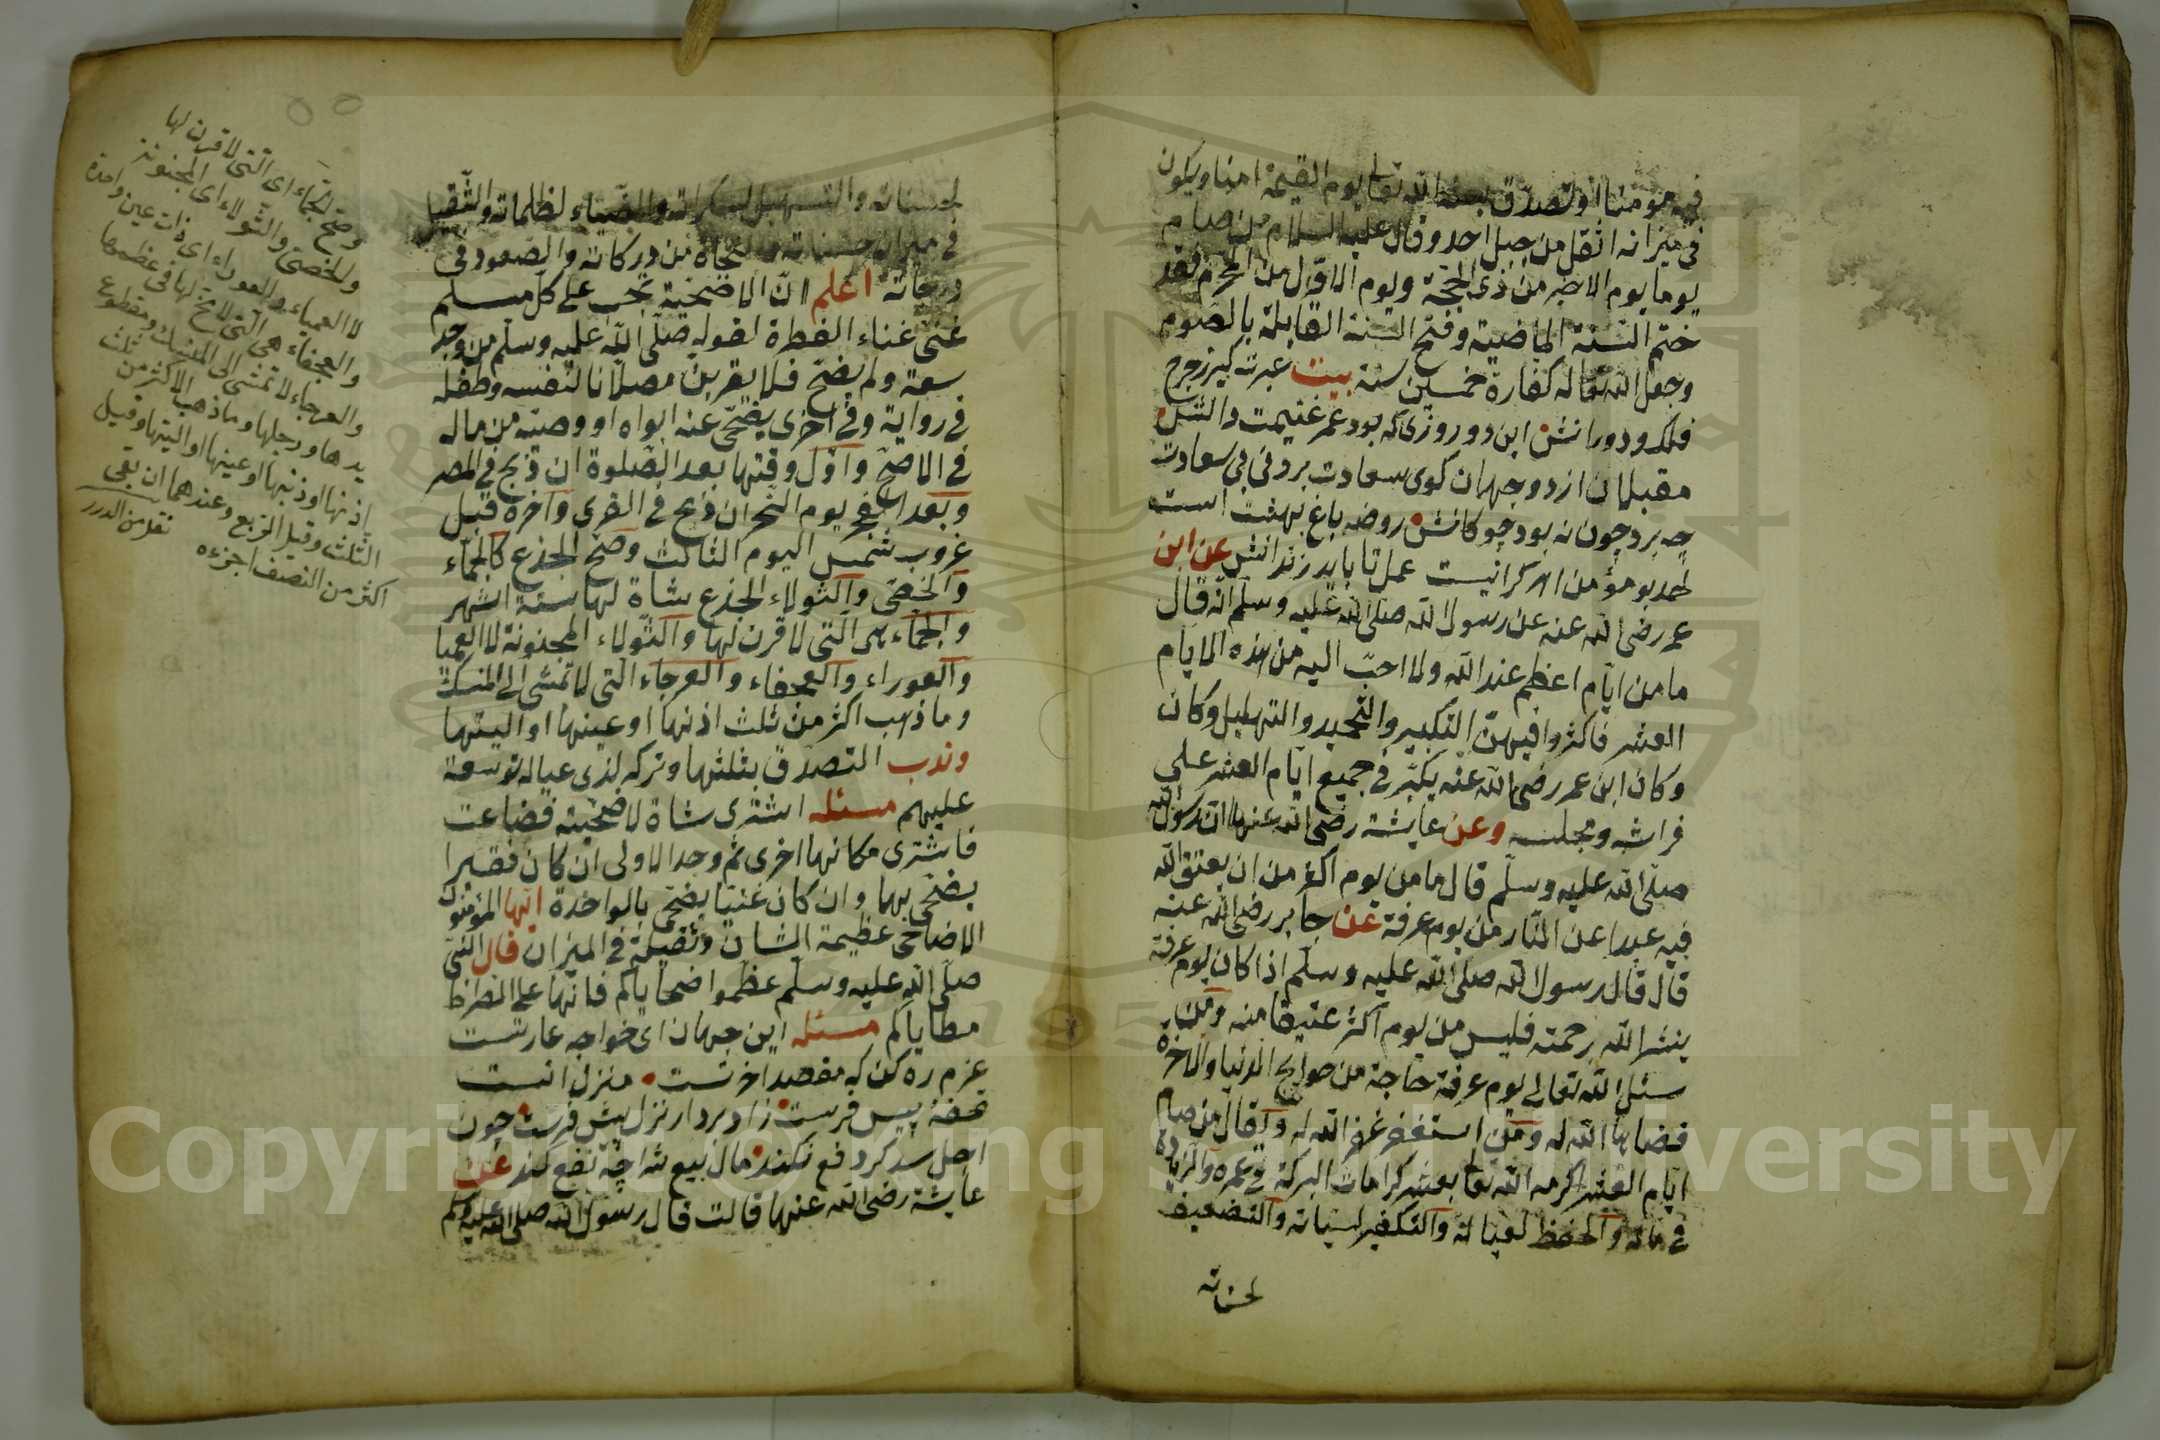 فيه مؤمنا او تصدق بعثه الله تعالى يوم القيمة امنا ويكون
في ميزانه اثقل من جبل احد وقال عليه السلام من صام
يوما يوم الاخر من ذى الحجة ويوم الاول من المحرم فقد
ختم السنة الماضية وفتح السنة القابلة بالصوم
وجعل الله تعالى له كفارة خمسين سنة بيت عبرت كيرز جرح
فلك ودورانش اين دو روزى كه بود عمر غنيمت دانش
مقبلان از دو جهان كوى سعادت بردنى بى سعادت
چه برد چون نه بود چوكانش روضه باغ بهشت است
عمل تا بايد زندانش عن ابن
عمر رضى الله عنه عن رسول الله صلى الله عليه وسلم انه قال
ما من ايام اعظم عند الله ولا احب اليه من هذه الايام
العشر فاكثروا فيهن التكبير والتحميد والتهليل وكان
وكان ابن عمر رضى الله عنه يكبر في جميع ايام العشر على
فراشه ومجلسه وعن عايشة رضى الله عنها ان رسول الله
صلى الله عليه وسلم قال ما من يوم اكثر من ان يعتق الله
فيه عبدا عن النار من يوم عرفة عن جابر رضى الله عنه
قال قال رسول الله صلى الله عليه وسلم اذا كان يوم عرفة
ينشر الله رحمته فليس من يوم اكثر عتيقا منه ومن
سئل الله تعالى يوم عرفة حاجة من حوايج الدنيا والاخرة
قضاها الله له ومن استغفر غفر الله له ويقال من صام
ايام العشر اكرمه الله تعا بعشر كرامات البركة في عمره والزيادة
في ماله والحفظ لعياله والتكفير لسيأته والتضعيف
لحسناته
لحسناته والتسهيل لسكراته والضياء لظلماته والتثقيل
في ميزان حسناته والنجاة من دركاته والصعود في
درجاته اعلم ان الاضحية تجب على كل مسلم
غنى غناء الفطرة لقوله صلى الله عليه وسلم من وجد
سعة ولم يضح فلا يقربن مصلانا لنفسه وطفله
في رواية وفي اخرى يضحى عنه ابواه او وصيه من ماله
في الاصح واول وقتها بعد الصلوة ان ذبح في المصر
وبعد الفجر يوم النحر ان ذبح في القرى واخره قبل
غروب شمس اليوم الثالث وصح الجذع كالجماء
والخصى والثولاء الجذع شاة لها ستة اشهر
والجماء هى التى لا قرن لها والثولاء المجنونة لا العميا
والعوراء والعجفاء والعرجاء التى لا تمشى الى المنسك
وما ذهب اكثر من ثلث اذنها او عينها او اليتها
وندب التصدق بثلثها وتركه لذى عياله توسعة
عليهم مسئله اشترى شاة لاضحيته فضاعت
فاشترى مكانها اخرى ثم وجد الاولى ان كان فقيرا
يضحى بهما وان كان غنيا يضحى بالواحدة ايها المؤمنون
الاضاحى عظيمة الشان وثقيلة في الميزان قال النبى
صلى الله عليه وسلم عظموا ضحاياكم فانها على الصراط
مطاياكم مسئله اين جهان اى خواجه عاريتست
عزم ره كن كه مقصد اخرتست منزل انيست
تحفة پيس فرست زاد بردار نزل پيش فرست چون
اجل سد كرد فع نكند مال بيع شد اچه نفع كند عن
عايشة رضى الله عنها قالت قال رسول الله صلى الله عليه وسلم
وصح الجماء اى التى لا قرن لها
والخصى والثولاء اى المجنونة
لا العمياء والعوراء اى ذات عين واحدة
والعجفاء هى التى لا مخ لها في عظمها
والعرجاء لا تمشى الى المنسك ومقطوع
يدها ورجلها وما ذهب الاكثر من ثلث
اذنها او ذنبها او عينها او اليتها وقيل
الثلث وقيل الربع وعندهما ان بقى
اكثر من النصف اجزءه نقل من الدرر
Copyright © King Saud University
1957